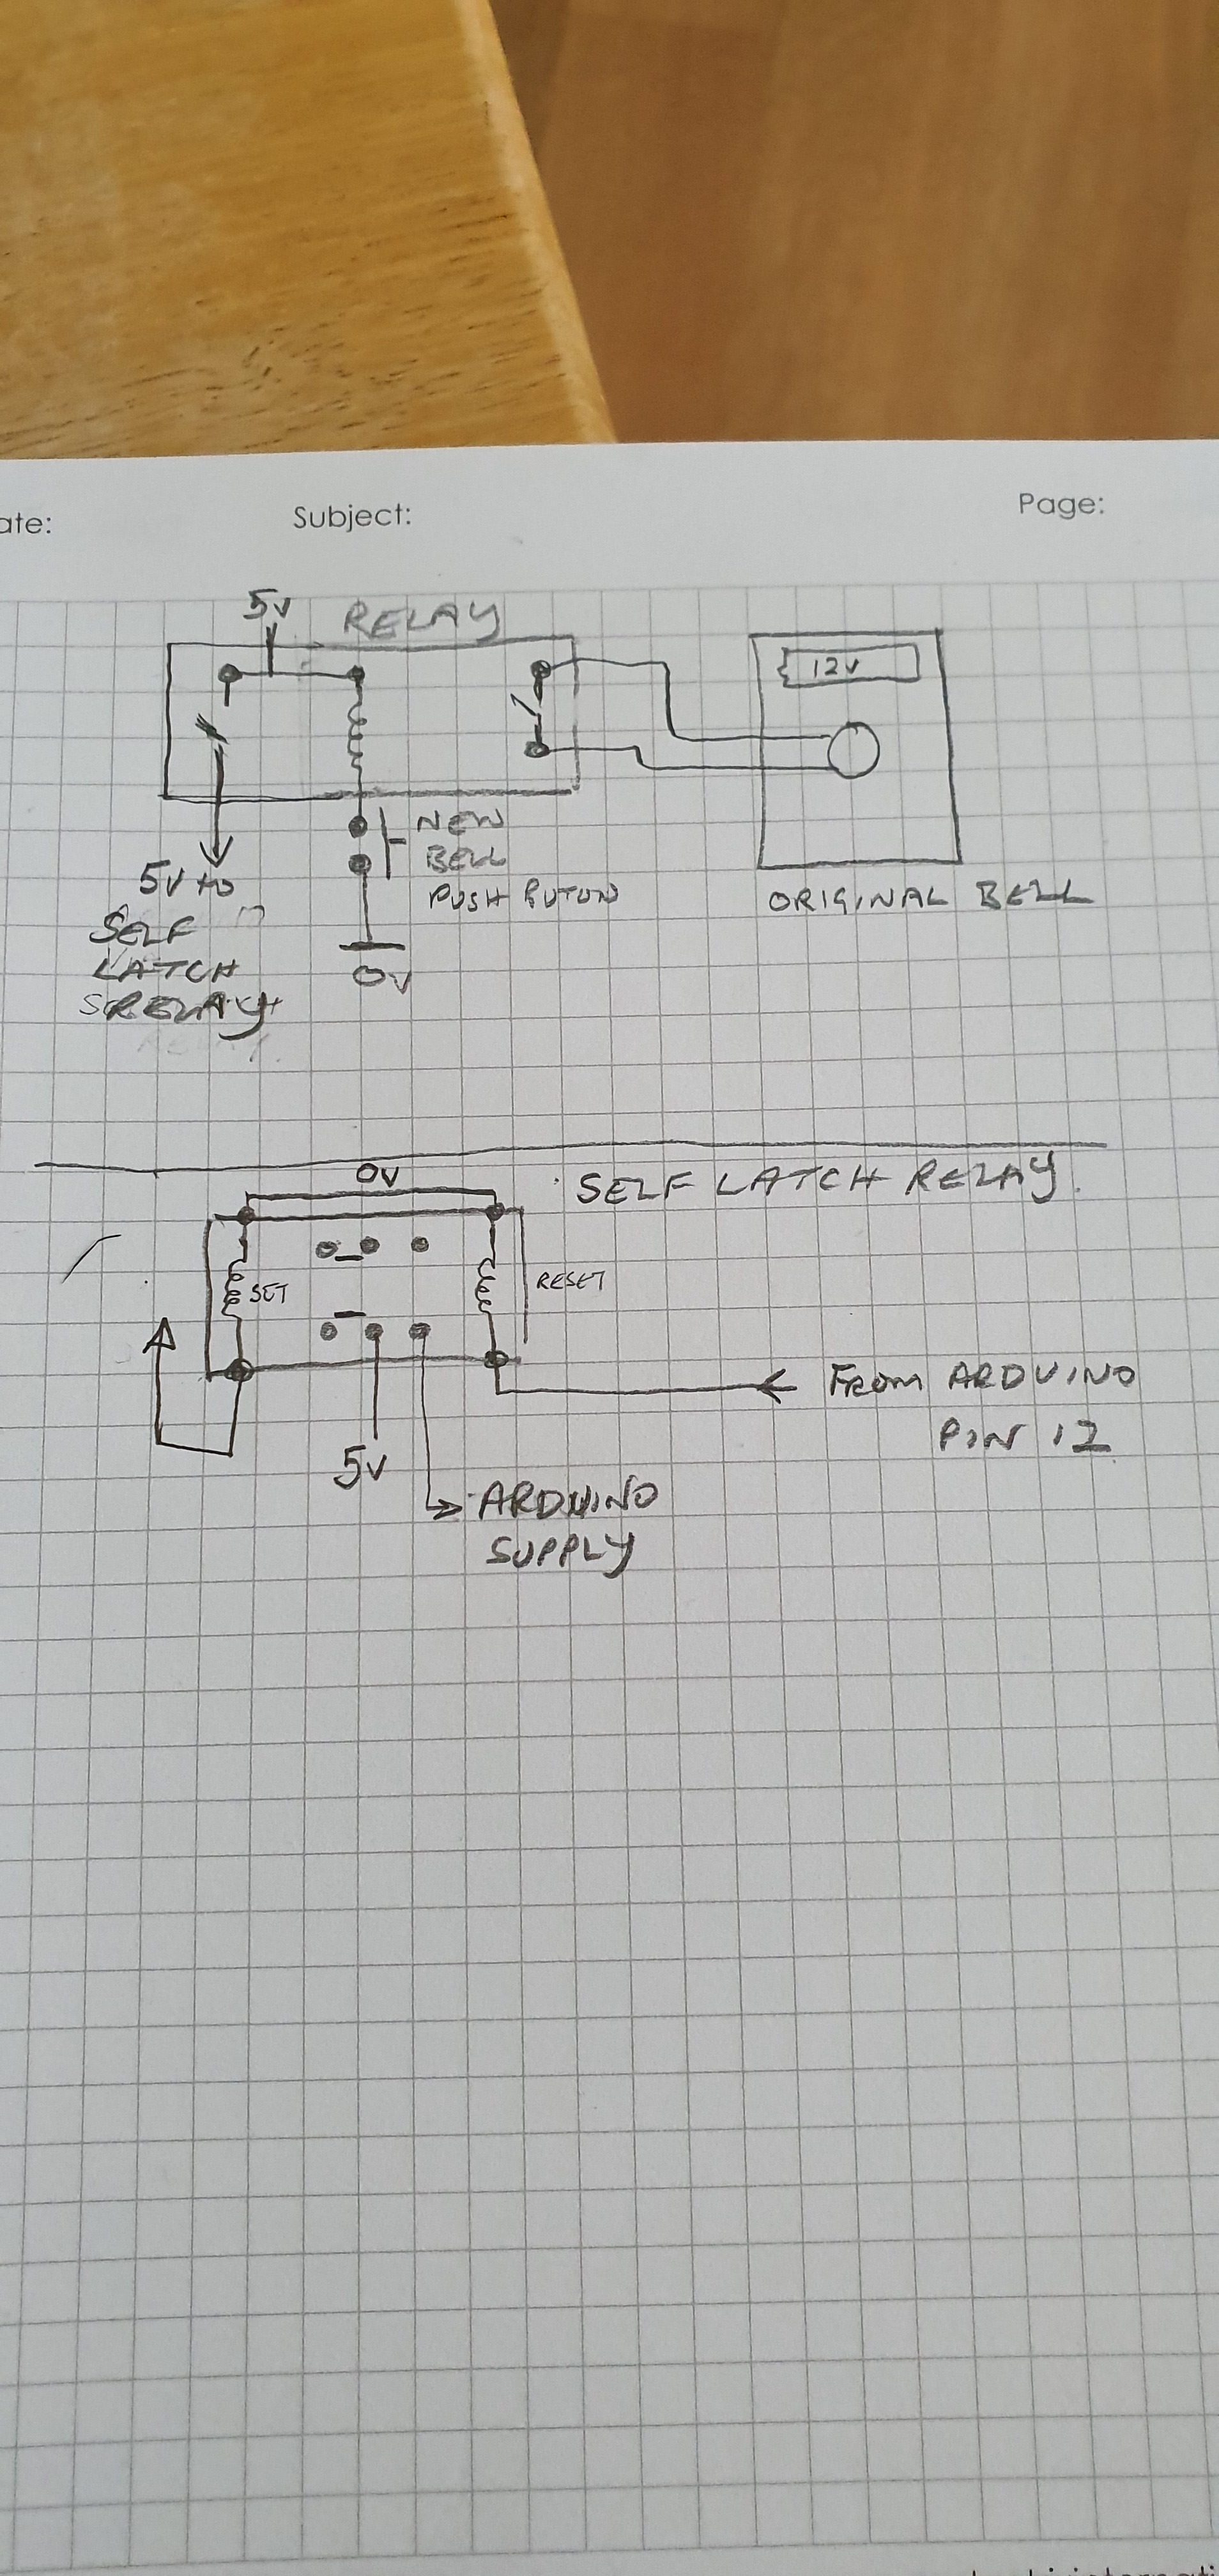 Subject:
Page:
5V
RELAY
12V
NEW
BELL
PUSH BUTON
ORIGINAL BELL
5V to
SELF
LATCH
RELAY
0V
0V
SELF LATCH RELAY.
SET
RESET
FROM ARDUINO
PIN 12
5V
ARDUINO
SUPPLY